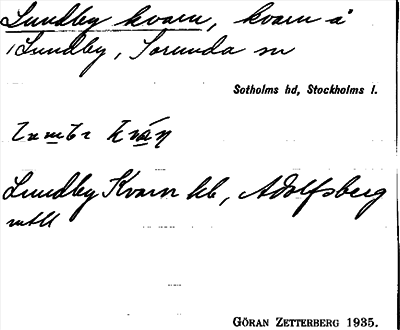 Lundby kvarn, kvarn å
Lundby, Sorunda sn
Sotholms hd, Stockholms l.
Lundby Kvarn kb, Adolfsberg
GÖRAN ZETTERBERG 1935.